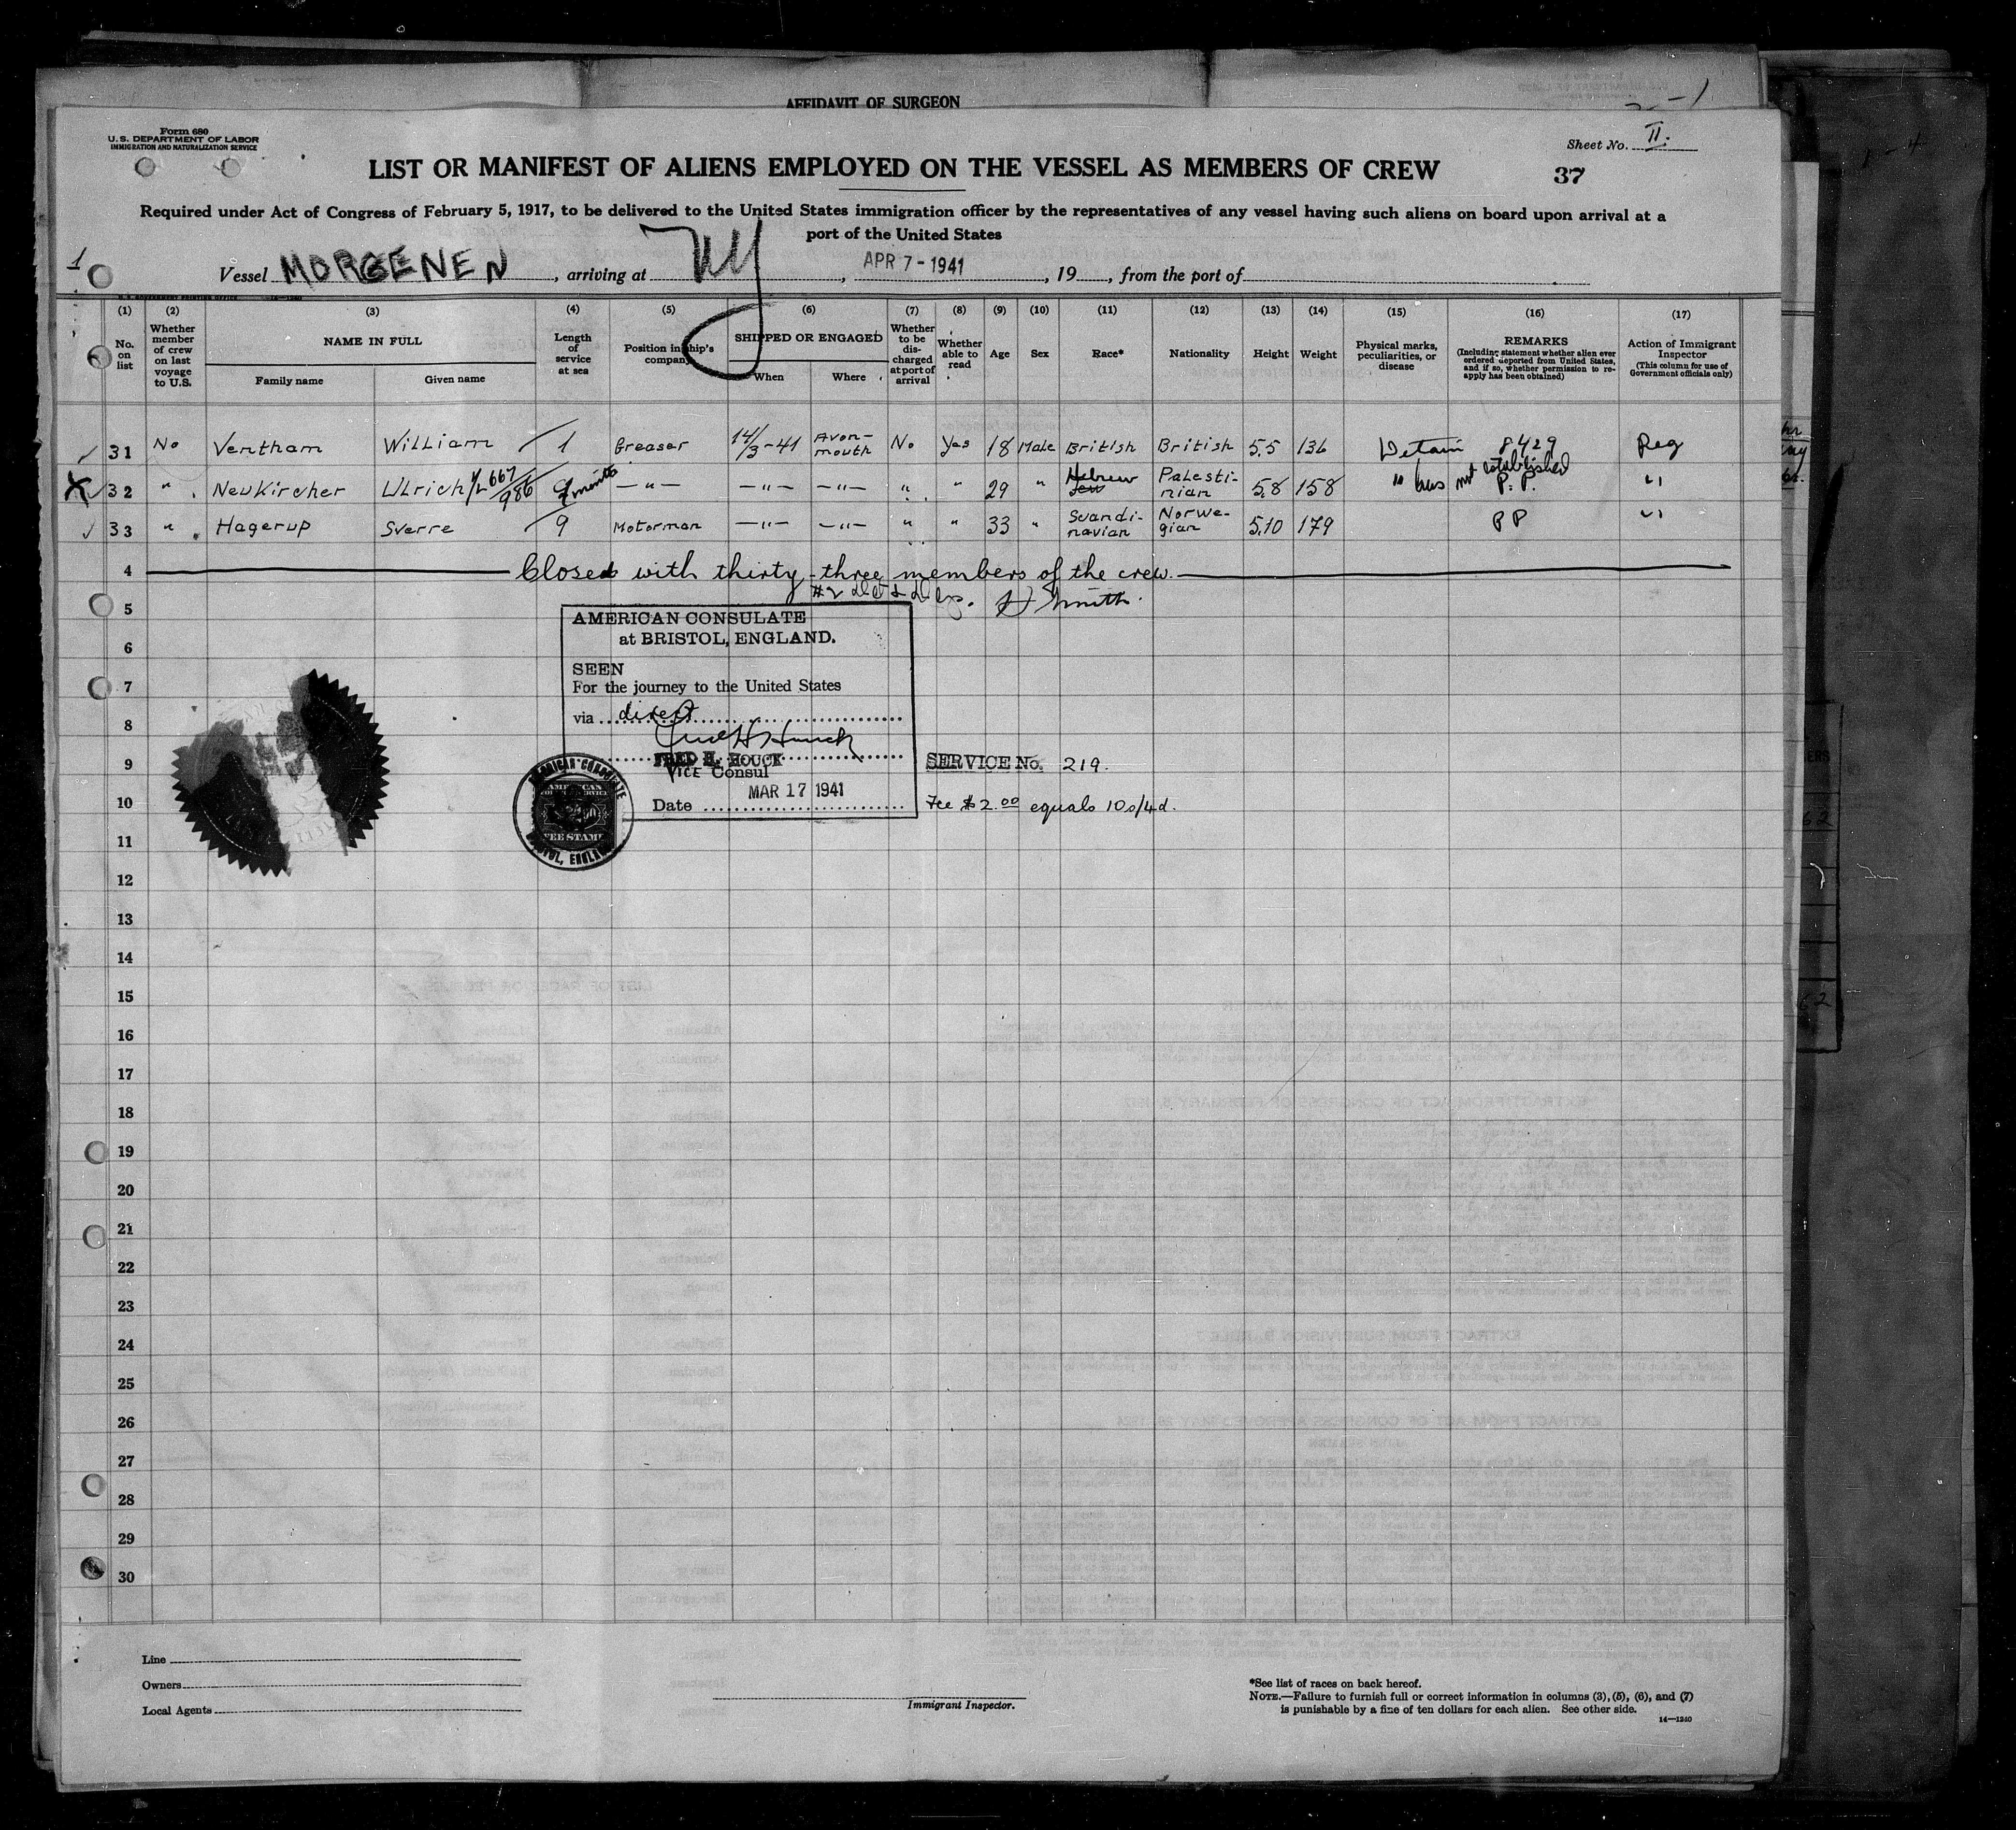 AFFIDAVIT OF SURGEON
Form 680
U.S. DEPARTMENT OF LABOR
IMMIGRATION AND NATURALIZATION SERVICE
Sheet No. II.
LIST OR MANIFEST OF ALIENS EMPLOYED ON THE VESSEL AS MEMBERS OF CREW
37
Required under Act of Congress of February 5, 1917, to be delivered to the United States immigration officer by the representatives of any vessel having such aliens on board upon arrival at a
port of the United States
1
Vessel MORGENEN, arriving at NY, APR 7 - 1941, 19, from the port of
(1) (2) (3) (4) (5) (6) (7) (8) (9) (10) (11) (12) (13) (14) (15) (16) (17)
No. on list
Whether member of crew on last voyage to U.S.
NAME IN FULL
Family name
Given name
Length of service at sea
Position in ship's company
SHIPPED OR ENGAGED
When
Where
Whether to be discharged at port of arrival
Whether able to read
Age
Sex
Race*
Nationality
Height
Weight
Physical marks, peculiarities, or disease
REMARKS
(Including statement whether alien ever ordered deported from United States, and if so, whether permission to reapply has been obtained)
Action of Immigrant Inspector
(This column for use of Government officials only)
31 No Ventham William 1 Greaser 14/3-41 Avonmouth No Yes 18 Male British British 5,5 136 Detain 8429 Reg
32 " Neukircher Ulrich 667/986 9 months —"— —"— —"— " " 29 " Hebrew Palestinian 5,8 158 " has not established P.P. "
33 " Hagerup Sverre 9 Motorman —"— —"— " " 33 " Scandinavian Norwegian 5,10 179 PP "
4 Closed with thirty-three members of the crew.
5
AMERICAN CONSULATE
at BRISTOL, ENGLAND.
6
SEEN
7
For the journey to the United States
via direct
8
FRED H. HOUCK
VICE Consul
9
SERVICE No. 219.
Date MAR 17 1941
10
Fee $2.00 equals 10s/4d.
AMERICAN CONSULATE
FEE STAMP
BRISTOL, ENGLAND
11
12
13
14
15
16
17
18
19
20
21
22
23
24
25
26
27
28
29
30
Line
Owners
Local Agents
Immigrant Inspector.
*See list of races on back hereof.
NOTE.—Failure to furnish full or correct information in columns (3), (5), (6), and (7)
is punishable by a fine of ten dollars for each alien. See other side.
14—1240